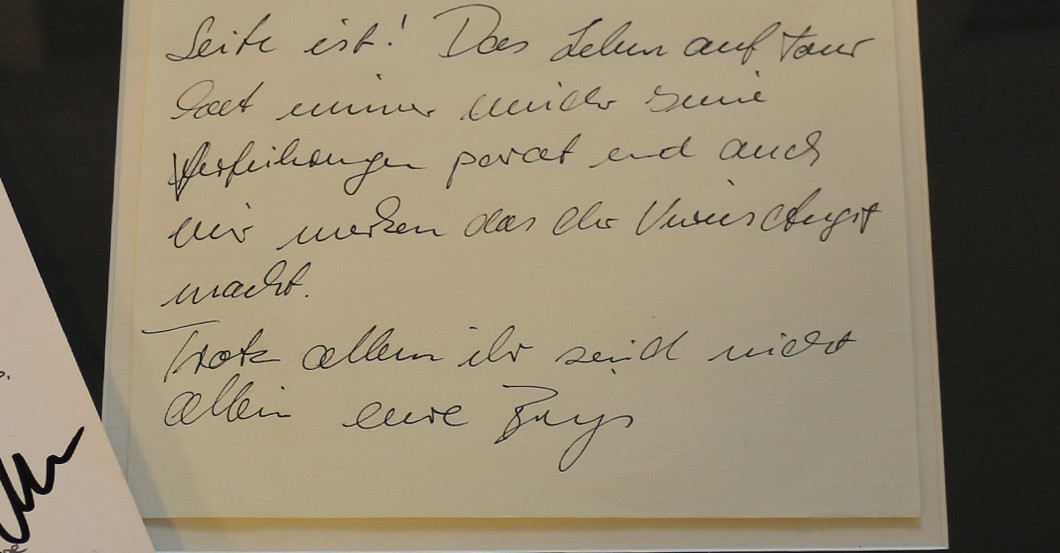 Seite ist! Das Leben auf Tour
hat immer wieder seine
Verfeihungen parat und auch
wir merken das der Virus Angst
macht.
Trotz allem ihr seid nicht
allein eure Boys